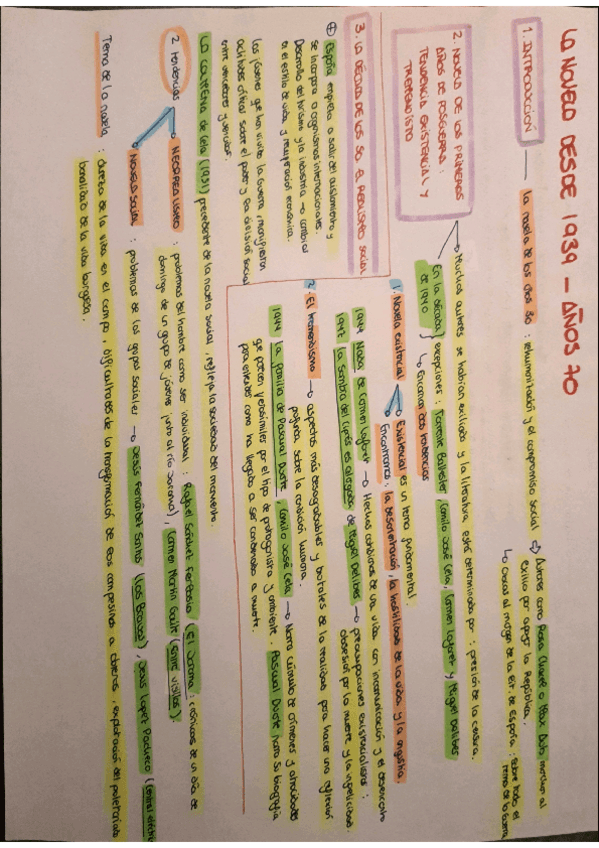 LA NOVELA DESDE 1939 - AÑOS 70
1. INTRODUCCIÓN
La novela de los años 30: rehumanización y el compromiso social → Autores como Rosa Chacel o Max Aub marchan al
exilio por apoyar la República.
↳ Obras al margen de la lit. de España: sobre todo el
tema de la guerra
2. NOVELA DE LOS PRIMEROS
AÑOS DE POSGUERRA:
TENDENCIA EXISTENCIAL Y
TREMENDISTA
→ Muchos autores se habían exiliado y la literatura está determinada por: presión de la censura.
En la década
de 1940
excepciones: Torrente Ballester, Camilo José Cela, Carmen Laforet y Miguel Delibes
↳ Encarnan dos tendencias
1. Novela existencial
→ Existencial es un tema fundamental.
→ Encontramos: la desorientación, la hostilidad de la vida y la angustia.
1944 Nada de Carmen Laforet → Hechos cotidianos de una vida con incomunicación y el desencanto
1947 La sombra del ciprés es alargada de Miguel Delibes → preocupaciones existenciales:
obsesión por la muerte y la infelicidad.
2. El tremendismo → aspectos más desagradables y brutales de la realidad para hacer una reflexión
profunda sobre la condición humana.
1942 La familia de Pascual Duarte, Camilo José Cela → Narra cúmulo de crímenes y atrocidades
que parecen verosímiles por el tipo de protagonista y ambiente. Pascual Duarte narra su biografía
para entender cómo ha llegado a ser condenado a muerte.
3. LA DÉCADA DE LOS 50. EL REALISMO SOCIAL
España empieza a salir del aislamiento y
se incorpora a organismos internacionales.
Desarrollo del turismo y la industria → cambios
en el estilo de vida y recuperación económica.
Los jóvenes que han vivido la Guerra, manifiestan
actitudes críticas sobre el poder y la división social
entre vencedores y vencidos.
LA COLMENA de Cela (1951) precedente de la novela social, refleja la sociedad del momento.
2 tendencias
→ NEORREALISMO: problemas del hombre como ser individual: Rafael Sánchez Ferlosio (El Jarama: crónicas de un día de
domingo de un grupo de jóvenes junto al río Jarama), Carmen Martín Gaite (Entre visillos).
→ NOVELA SOCIAL: problemas de los grupos sociales → Jesús Fernández Santos (Los Bravos), Jesús López Pacheco (Central eléctrica)
Tema de la novela: dureza de la vida en el campo, dificultades de la transformación de los campesinos a obreros, explotación del proletariado
banalidad de la vida burguesa.